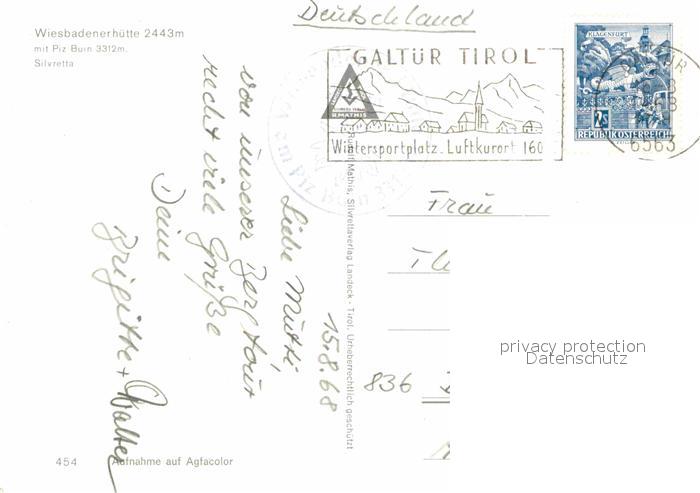 Wiesbadenerhütte 2443m
mit Piz Buin 3312m.
Silvretta
Deutschland
GALTÜR TIROL
Wintersportplatz. Luftkurort 160
KLAGENFURT
2S
REPUBLIK ÖSTERREICH
6563
R. MATHIS
15.8.68
Liebe Mutti,
von unserer Bergtour
recht viele Grüße
Deine
Brigitte + Walter
Rudolf Mathis, Silvrettaverlag Landeck - Tirol. Urheberrechtlich geschützt
Frau
836
privacy protection
Datenschutz
454 Aufnahme auf Agfacolor